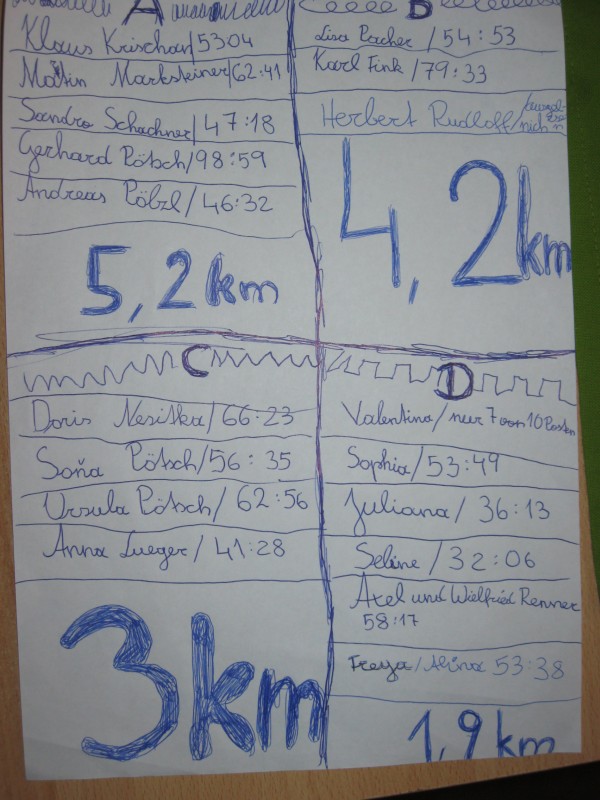 A
Klaus Krischan/5304
Martin Marksteiner/62:41
Sandro Schachner/47:18
Gerhard Pötsch/98:59
Andreas Pölzl/46:32
5,2km
B
Lisa Pacher/54:53
Karl Fink/79:33
Herbert Rudloff/
4,2km
C
Doris Nesitka/66:23
Soňa Pötsch/56:35
Ursula Pötsch/62:56
Anna Lueger/41:28
3km
D
Valentina/nur 7 von 10 Posten
Sophia/53:49
Juliana/36:13
Sabine/32:06
Axel und Wielfried Renner
58:17
Freya/Alina 53:38
1,9km